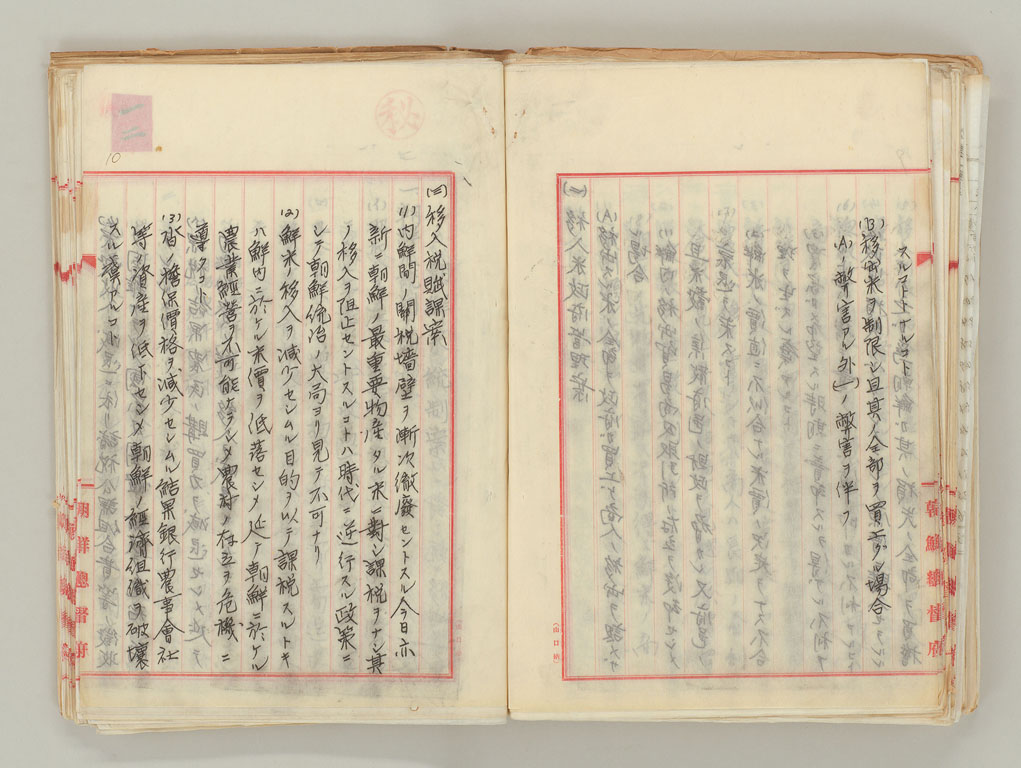 スルコトトナルコト
(B)移出米ヲ制限シ且其ノ全部ヲ買上グル場合
(A)ノ弊害ノ外(一)ノ弊害ヲ伴フ
朝鮮總督府
秘
10
(三)移入税賦課案
(1)内鮮間ノ關税墻壁ヲ漸次徹廢セントスル今日亦
新ニ朝鮮ノ最重要物産タル米ニ對シ課税ヲナシ其
ノ移入ヲ阻止セントスルコトハ時代ニ逆行スル政策ニ
シテ朝鮮統治ノ大局ヨリ見テ不可ナリ
(2)鮮米ノ移入ヲ減少セシムル目的ヲ以テ課税スルトキ
ハ鮮内ニ於ケル米價ヲ低落セシメ延テ朝鮮ニ於ケル
農業經營ヲ不可能ナラシメ農村ノ存立ヲ危機ニ
導クコト
(3)沓ノ擔保價格ヲ減少セシムル結果銀行農事會社
等ノ資産ヲ低下セシメ朝鮮ノ經濟組織ヲ破壞
スル虞アルコト
朝鮮總督府